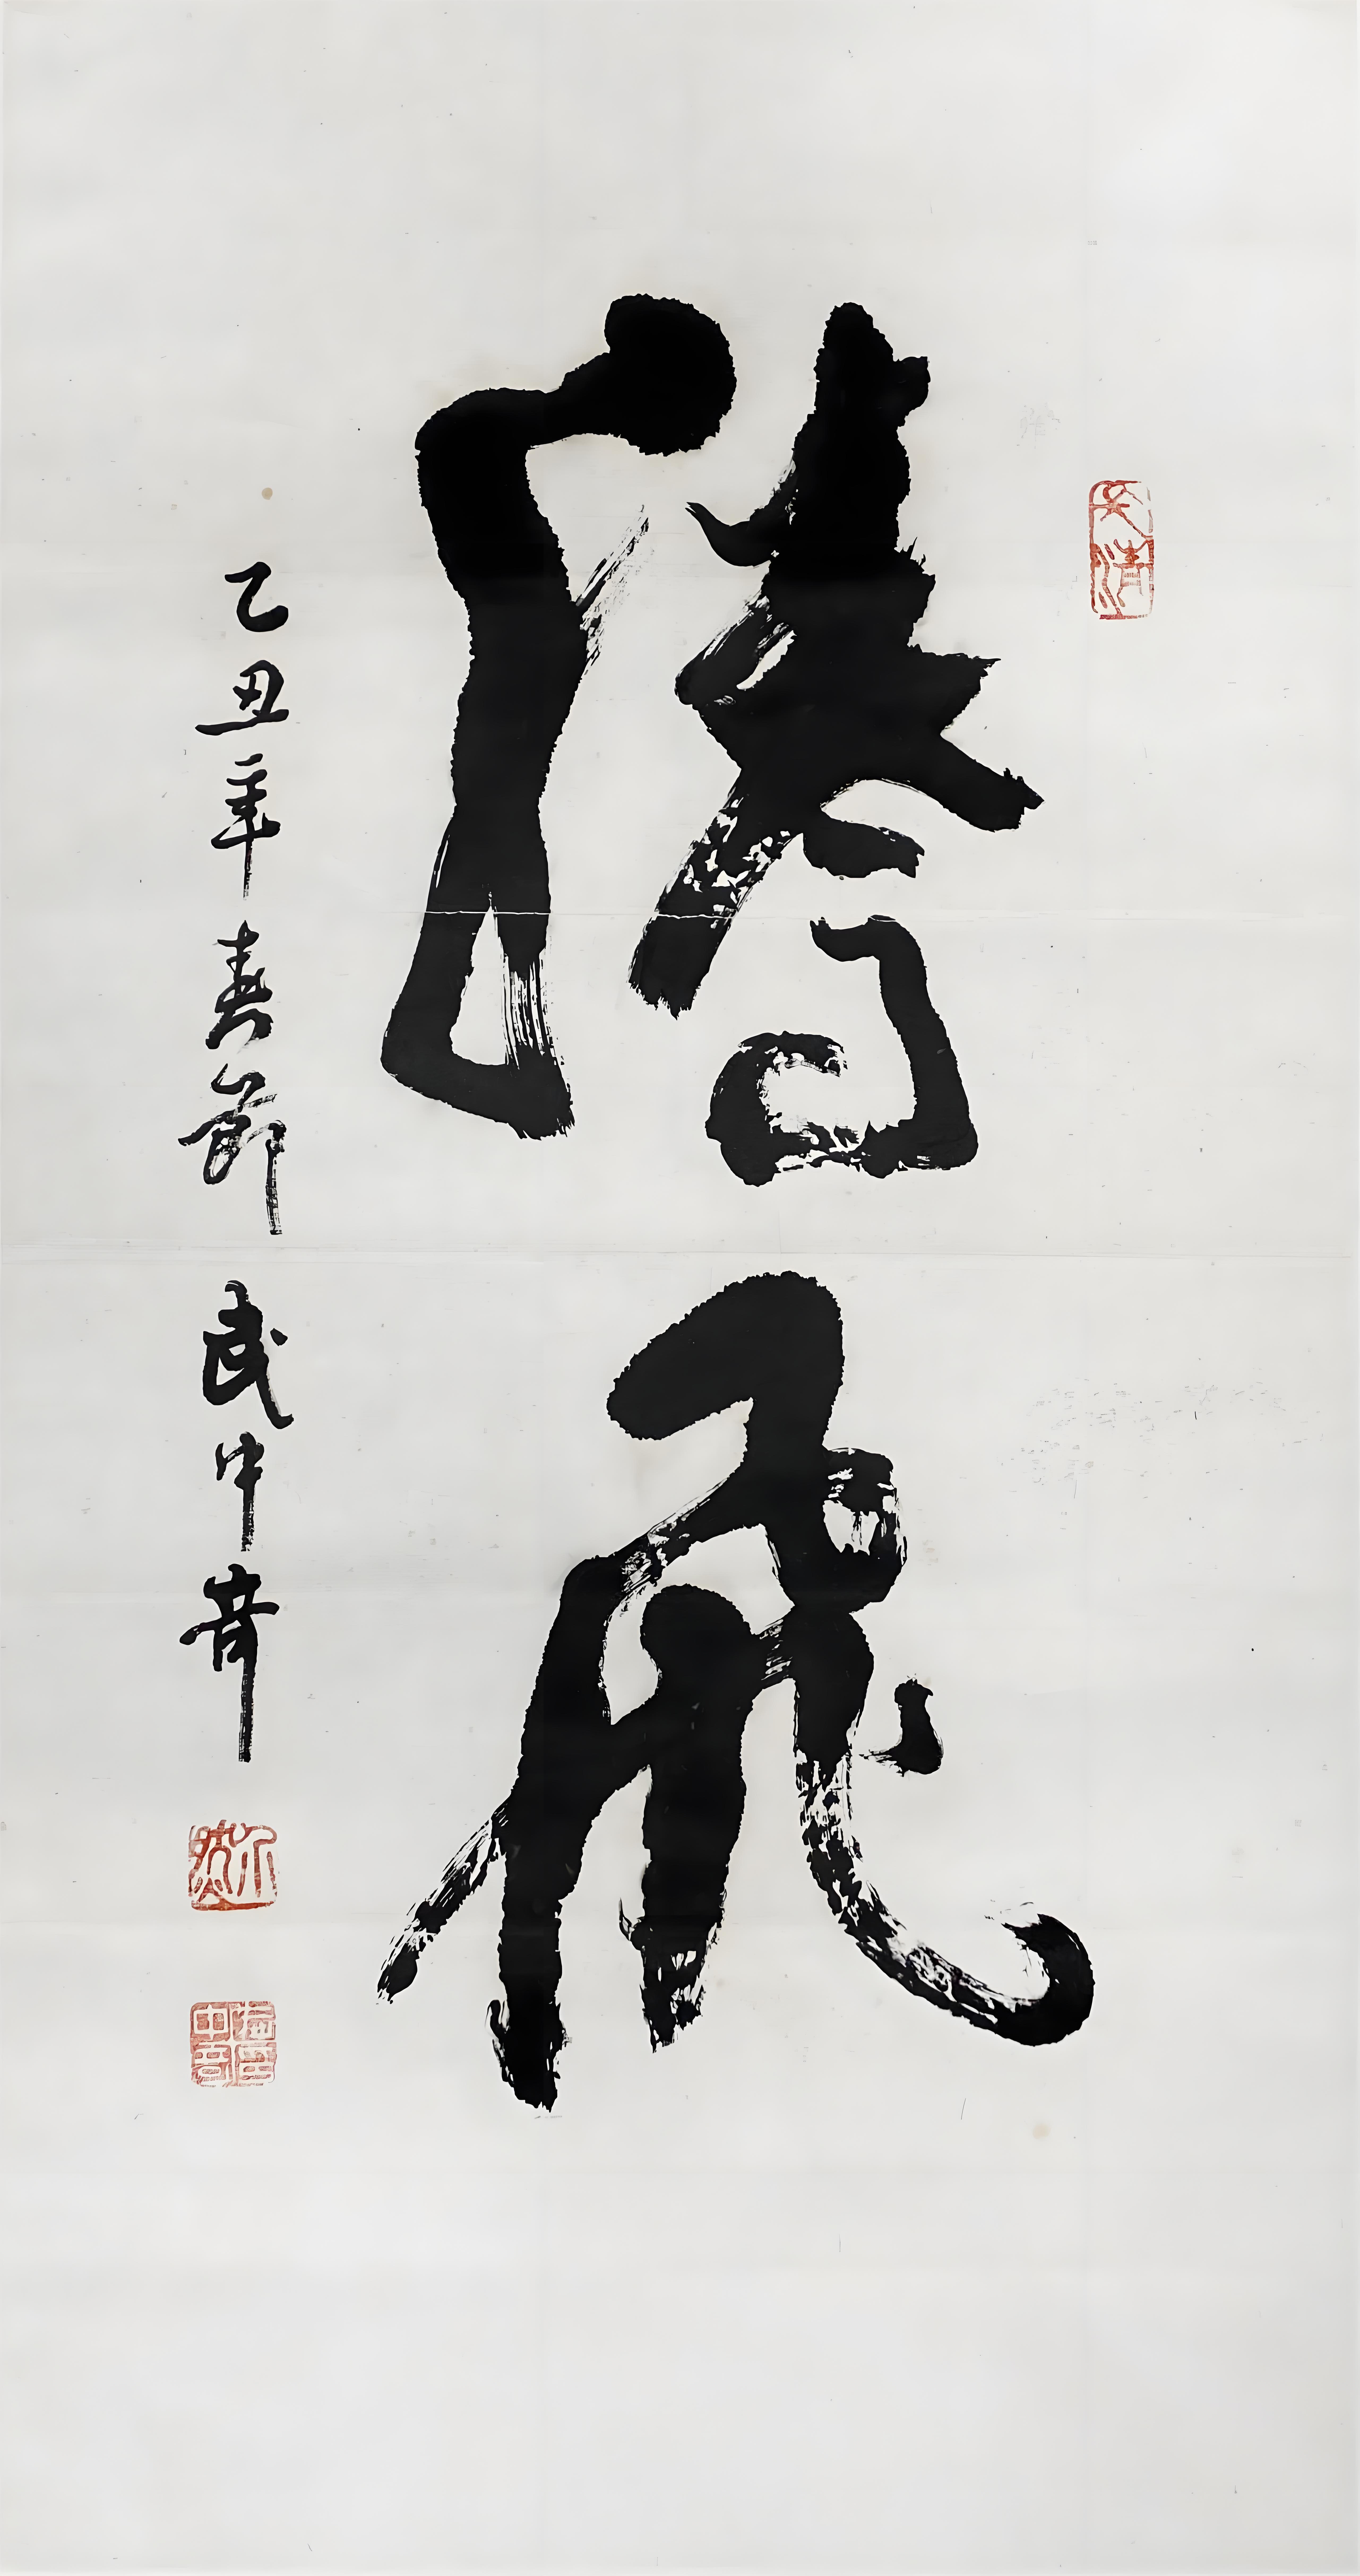 騰飛
乙丑年春節 武中奇